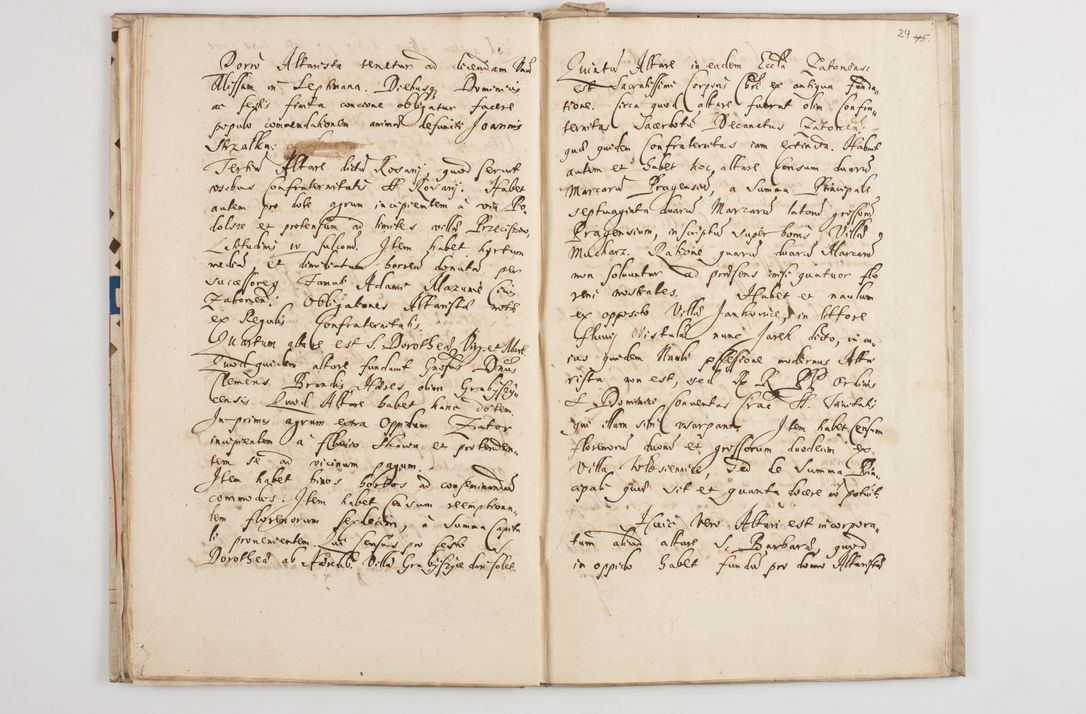 Porro Altarista tenetur ad dicendam unā
Missam in Septimana. Diebusq; Dominicis
ac festis finita concione obligatur facere
populo commendationem animæ defuncti Joannis
Strzałka.
Tertiū Altare dictū Rosarij, quod servit
usibus Confraternitatis SS. Rosarij. Habet
autem pro dote agrum incipientem à via Po-
dolsze et protensum ad limites villæ Przeciszow,
Latitudini Item habet hortum
mediū et dimidiatum hortū donatū per
successores Famati Adami Mazanie Civis
Zatorien: Obligationes Altaristæ
ex Regulis Confraternitatis.
Quartum altare est S. Dorotheæ Virg. et Mart.
Quod quidem altare fundavit Gnosus Dnus
Clemens Brandis Hæres olim Grabyszy-
censis. Quod Altare habet hanc dotem.
Inprimis agrum extra Oppidum Zator
incipientem à fluvio Skawa et protenden-
tem se ad vicinum pagum.
Item habet binos hortos ad conseminandū
commodos. Item habet Censum reemptiona-
lem florenorum sexdecim, à summa Capita
li provenientem. census pro festo S.
Dorotheæ ab Villæ Grabyszyce don solet.
24 45.
Quintū Altare in eadem Eccla Zatoriensi
est Sacratissimi Corporis Chri ex antiqua Funda-
tione. Circa quod altare fuerat olim Confra-
ternitas Sacerdotū Decanatus Zatorien:
quæ quidem Confraternitas iam extincta. Habuit
autem et habet hoc altare Censum duarū
Marcarū Pragensiū, a Summa Principali
septuaginta duarū Marcarū latorū grossorū
Pragensium, inscriptū super bonis Villæ
Mucharz. Ratione quarū duarū Marcarū
non solvuntur ad præsens nisi quatuor flo
reni nostrales. Habet et naulum
ex opposito Villæ Jankovice, in littore
fluvij Vistulæ nunc Jarek dicto, in cu-
ius quidem Nauli possessione modernus Alta
rista non est, sed RR PP Ordinis
S. Dominici Conventus Crac SS. Trinitatis
qui illam sibi usurpant. Item habet Censum
florenorū duorū et grossorum duodecim ex
Villa Włosienice, sed de Summa Prin-
cipali quæ sit et quanta docere nō potuit.
Huic vero Altari est incorpora-
tum aliud altare S. Barbaræ quod
in oppido habet fundū pro domo Altaristæ